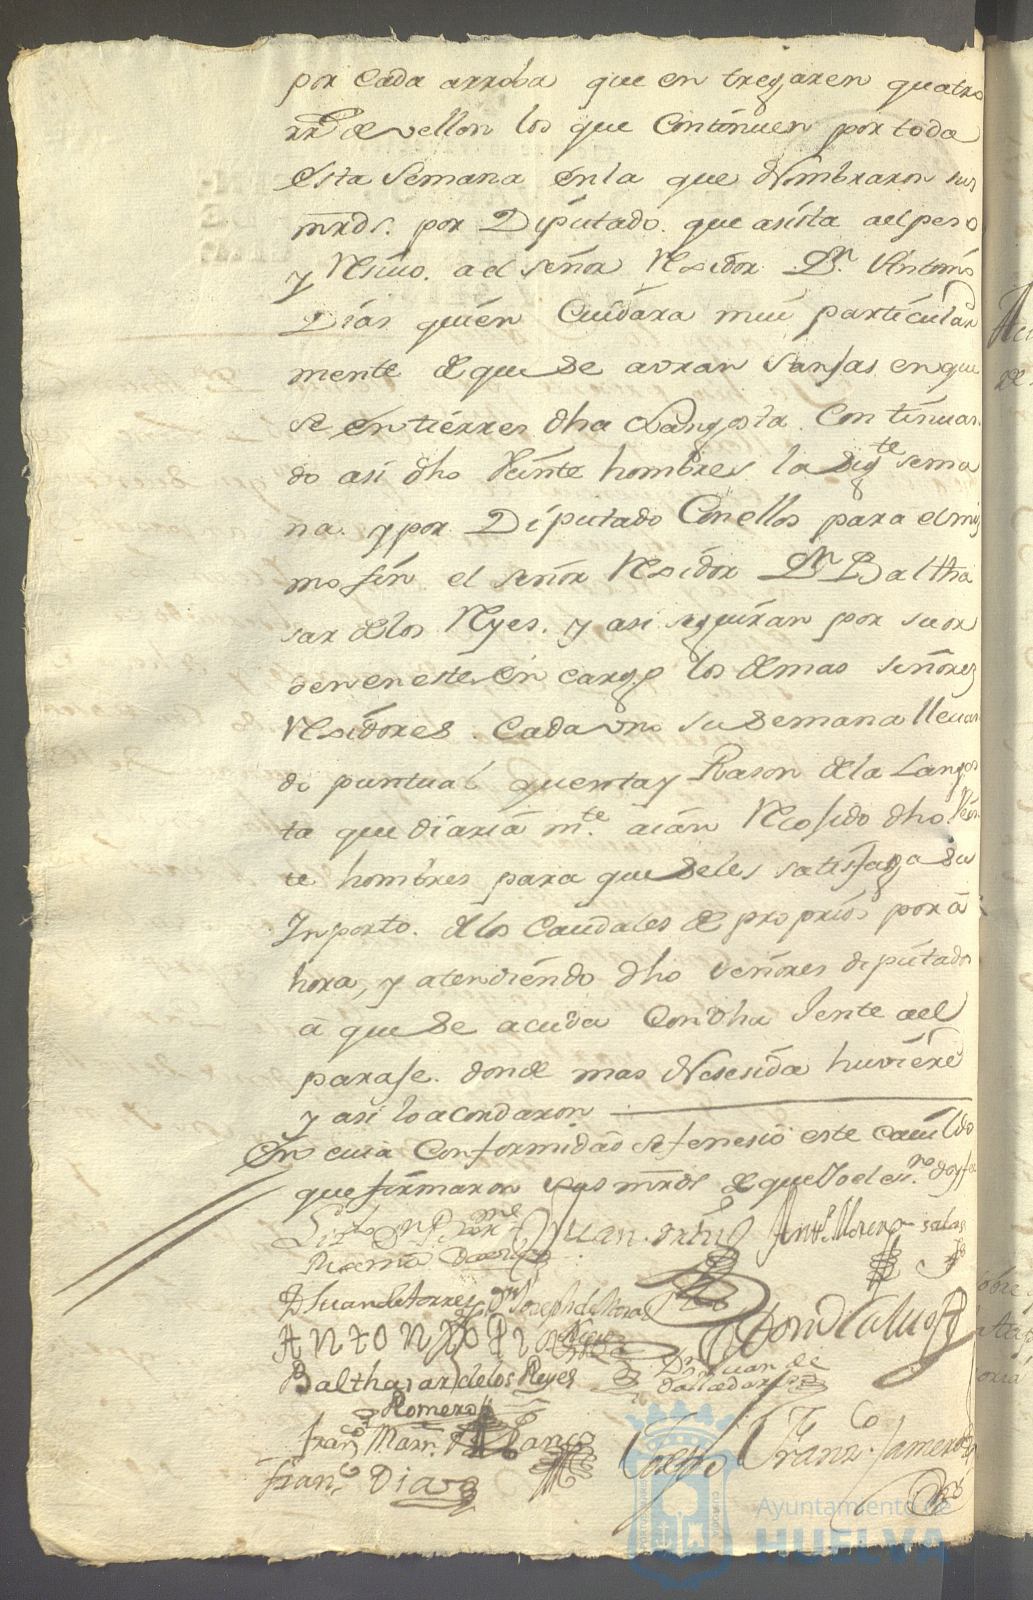 por Cada arroba que en tregaren quatro
rrs de vellon los que Continuen por toda
esta Semana en la que Nombraron sus
mrds. por Diputado. que asista ael peso
y Resiuo. a el señor Rexidor Dn. Antonio
Dias quien Cuidara mui particular
mente de que se avran Sanjas en que
se entierren dha Langosta. Continuan
do asi dho Veinte hombres la sigte sema
na. y por Diputado Con ellos para el mis
mo fin el señor Rexidor Dn Baltha
sar de los Reyes. y asi seguiran por su or
den en este en cargo los demas señores
Rexidores. Cada vno su semana lleuan
do puntual quenta y Rason de la Langos
ta que diaria mte. aian Recojido dho Vein
te hombres para que se les satisfaga su
Inporto. de los Caudales de proprios por a
hora, y atendiendo dho señores diputados
a que se acuda Con dha Jente ael
paraje. donde mas Nesesida huviere
y asi lo acordaron
En cuia Conformidad se fenesio este Cauildo
que firmaron sus mrds de que Yo el es.no doy fe
Juan. Ortiz Antt. Moreno salas
D Juan de torres Dn Joseph de Mora
ANTONIO
Balthasar de los Reyes Dn Juan de
Romero
Fran.co Marn.
Fran.co Diaz
Ayuntamiento de
HUELVA